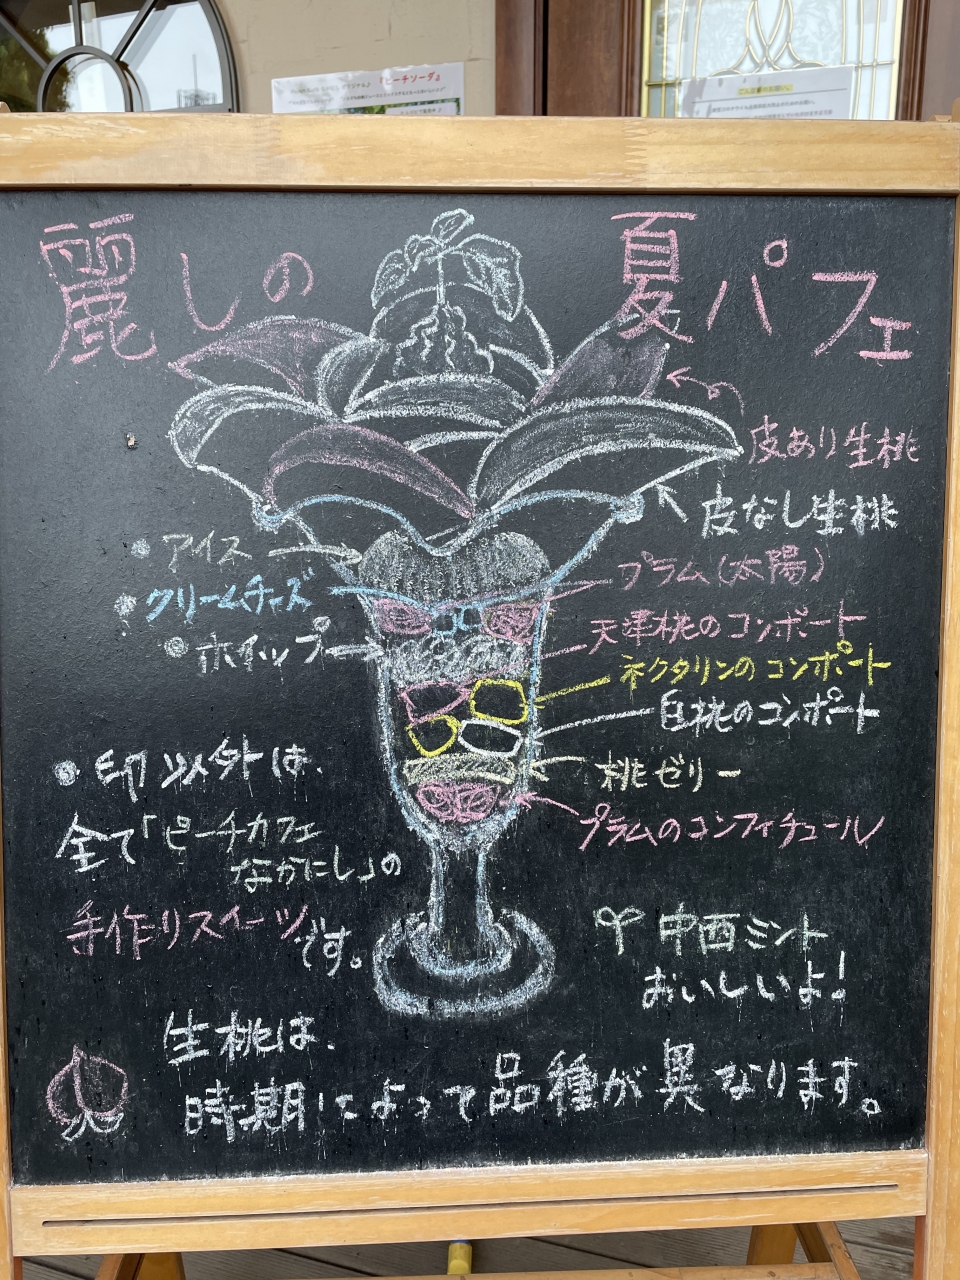 『ピーチソーダ』
麗しの 夏パフェ
皮あり生桃
皮なし生桃
●アイス
●クリームチーズ
●ホイップ
プラム(太陽)
天津桃のコンポート
ネクタリンのコンポート
白桃のコンポート
桃ゼリー
プラムのコンフィチュール
●印以外は、
全て「ピーチカフェ
なかにし」の
手作りスイーツです。
中西ミント
おいしいよ!
生桃は、
時期によって品種が異なります。